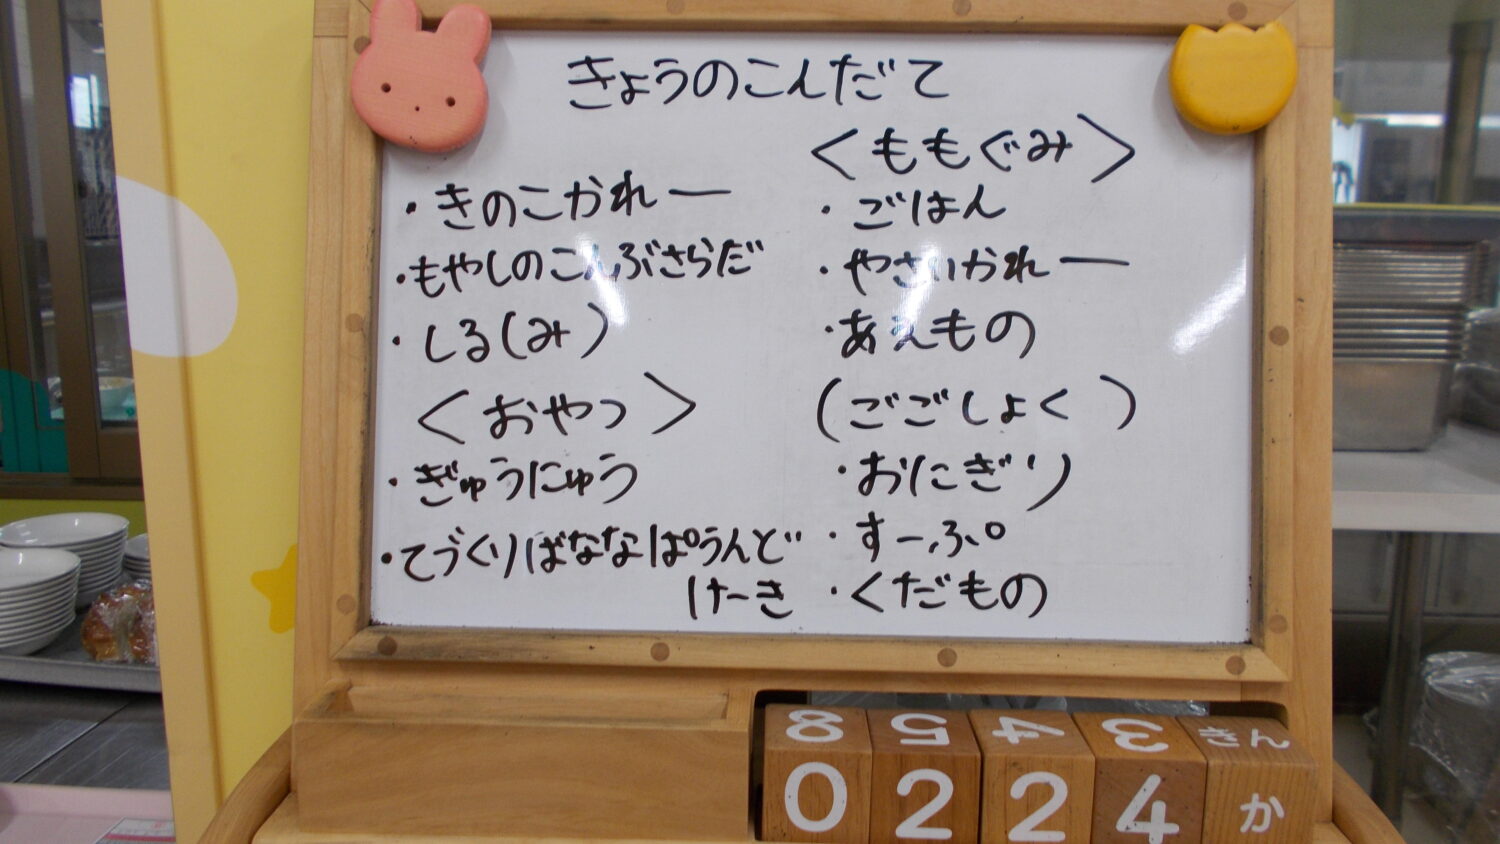 きょうのこんだて
・きのこかれー
・もやしのこんぶさらだ
・しる(み)
<おやつ>
・ぎゅうにゅう
・てづくりばななぱうんど
けーき
<ももぐみ>
・ごはん
・やさいかれー
・あえもの
(ごごしょく)
・おにぎり
・すーぷ
・くだもの
8 5 4 3 きん
0 2 2 4 か